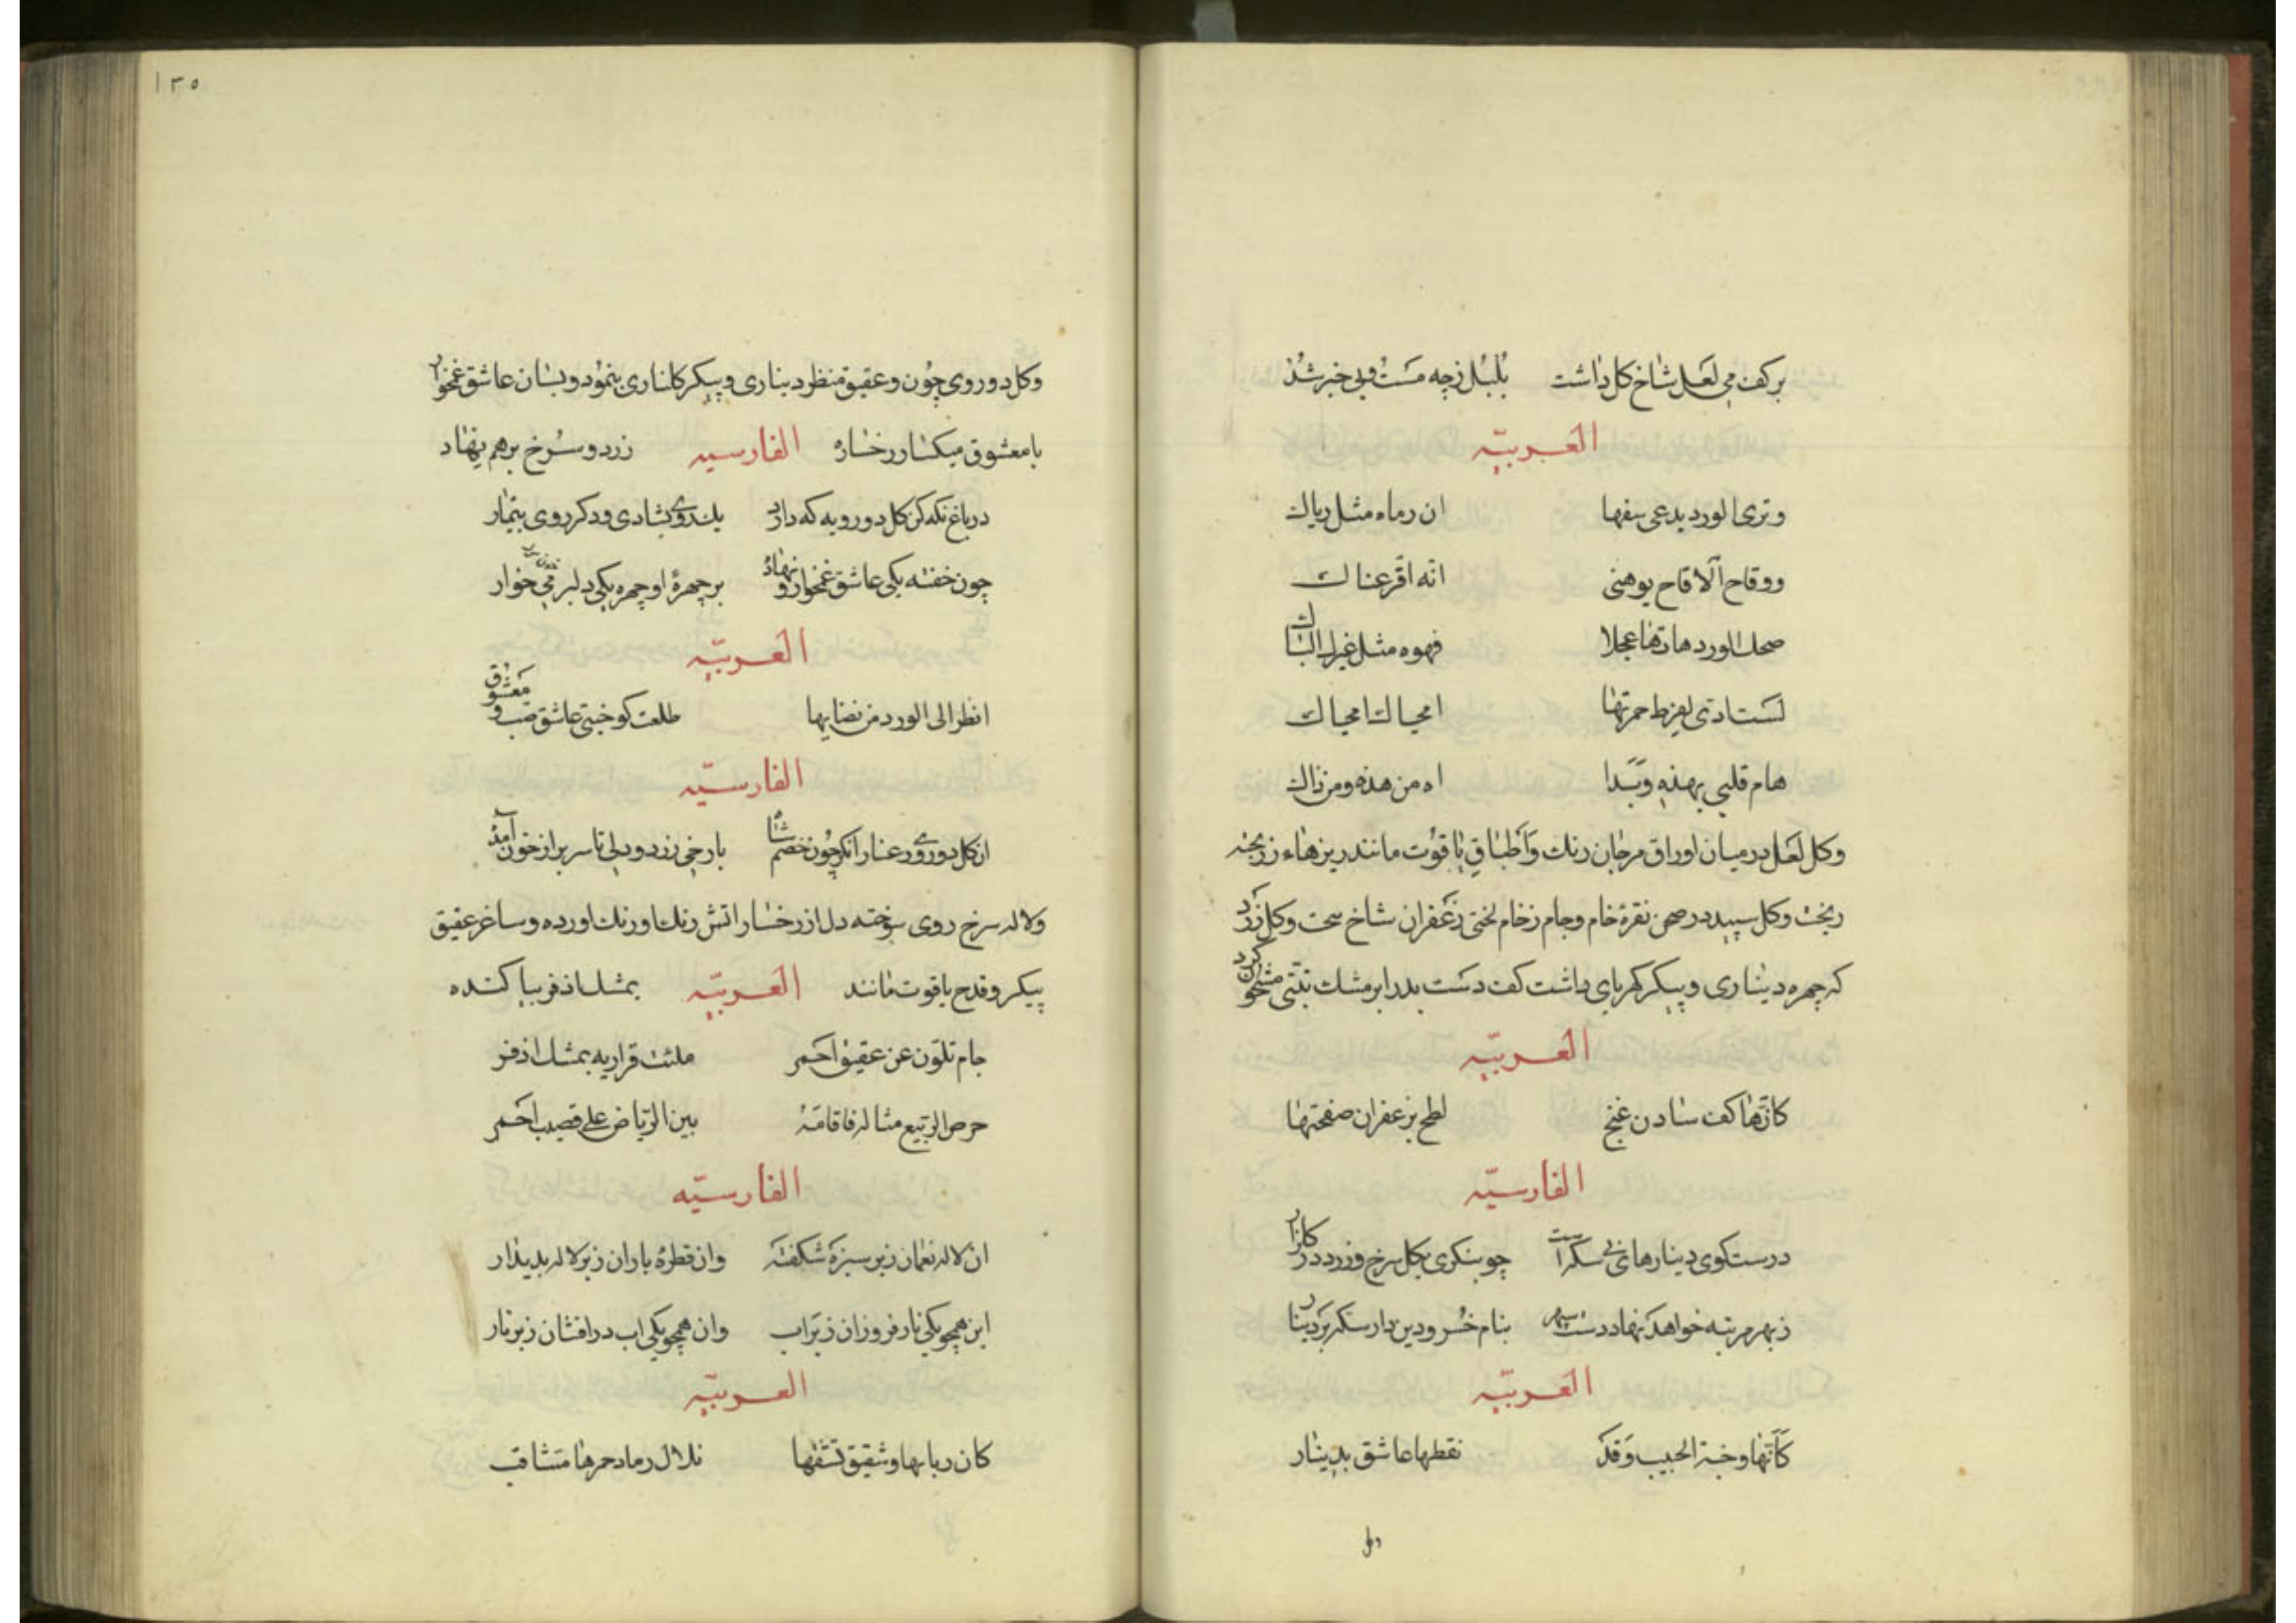 بر کف می لعل شاخ کل داشت بلبل زچه مست وبی خبر شد
العربیّه
وتری الورد یدعی سفها ان رماه مثل ریاك
ووقاح الاقاح یوهنی انّه اقرعناك
ضحك الورد هاتها عجلا قهوه مثل
لست ادری لفرط حمرتها امحیاك امحیاك
هام قلبی بهذه وبدا اه من هذه ومن ذاك
وکل لعل در میان اوراق مرجان رنك واطباق یاقوت مانند ریزهاء زر پخته
ریخت وکل سپید در صحن نقرهٔ خام وجام رخام لختی زعفران شاخ سخت وکل زرد
که چهره دیناری وپیکر کهربای داشت کف دست بدرابر مشك تبّتی مشحون کرد
العربیّه
کانها کف شادن غنج لطخ بزعفران صفحتها
الفارسیّه
درست کوی دینارهای بی سکه است چو بنکری بکل سرخ وزرد در کلزار
زبهر مرتبه خواهد نهاد دست سپهر بنام خسرو دین دار سکه بر دینار
العربیّه
کانّها وجنة الحبیب وقد نقطها عاشق بدینار
وکل
۱۳۵
وکل دوروی چون وعقیق منظر دیناری وپیکر کلناری بنمود وبسان عاشق غمخوار
با معشوق میکسار رخساره الفارسیه زرد وسرخ برهم نهاد
در باغ نکه کن کل دورویه که دارد یك روی بشادی ودکر روی بتیمار
چون خفته یکی عاشق غمخوار ونهاده بر چهرهٔ او چهره یکی دلبر می خوار
العربیّه
انظر الی الورد من طلعت کوجنتی عاشق ومعشوق
الفارسیّه
ان کل دوروی رعنا را نکر چون خصم شاه با رخی زرد ودلی تا سر پر از خون آمده
ولاله سرخ روی سوخته دل از رخسار اتش رنك اورنك اورده وساغر عقیق
پیکر وقدح یاقوت مانند العربیّه بمشك اذفر بیاکنده
جام تلوّن عن عقیق احمر ملئت قراریه بمسك اذفر
الربیع مثاله فاقامه بین الریاض علی قضیب اخضر
الفارسیّه
ان لاله نعمان زبر سبزه شکفته وان قطرهٔ باران زبر لاله پدیدار
این همچو یکی نار فروزان زبر اب وان همچو یکی اب درافشان زبر نار
العربیّه
کان وشقیق تلال رماد